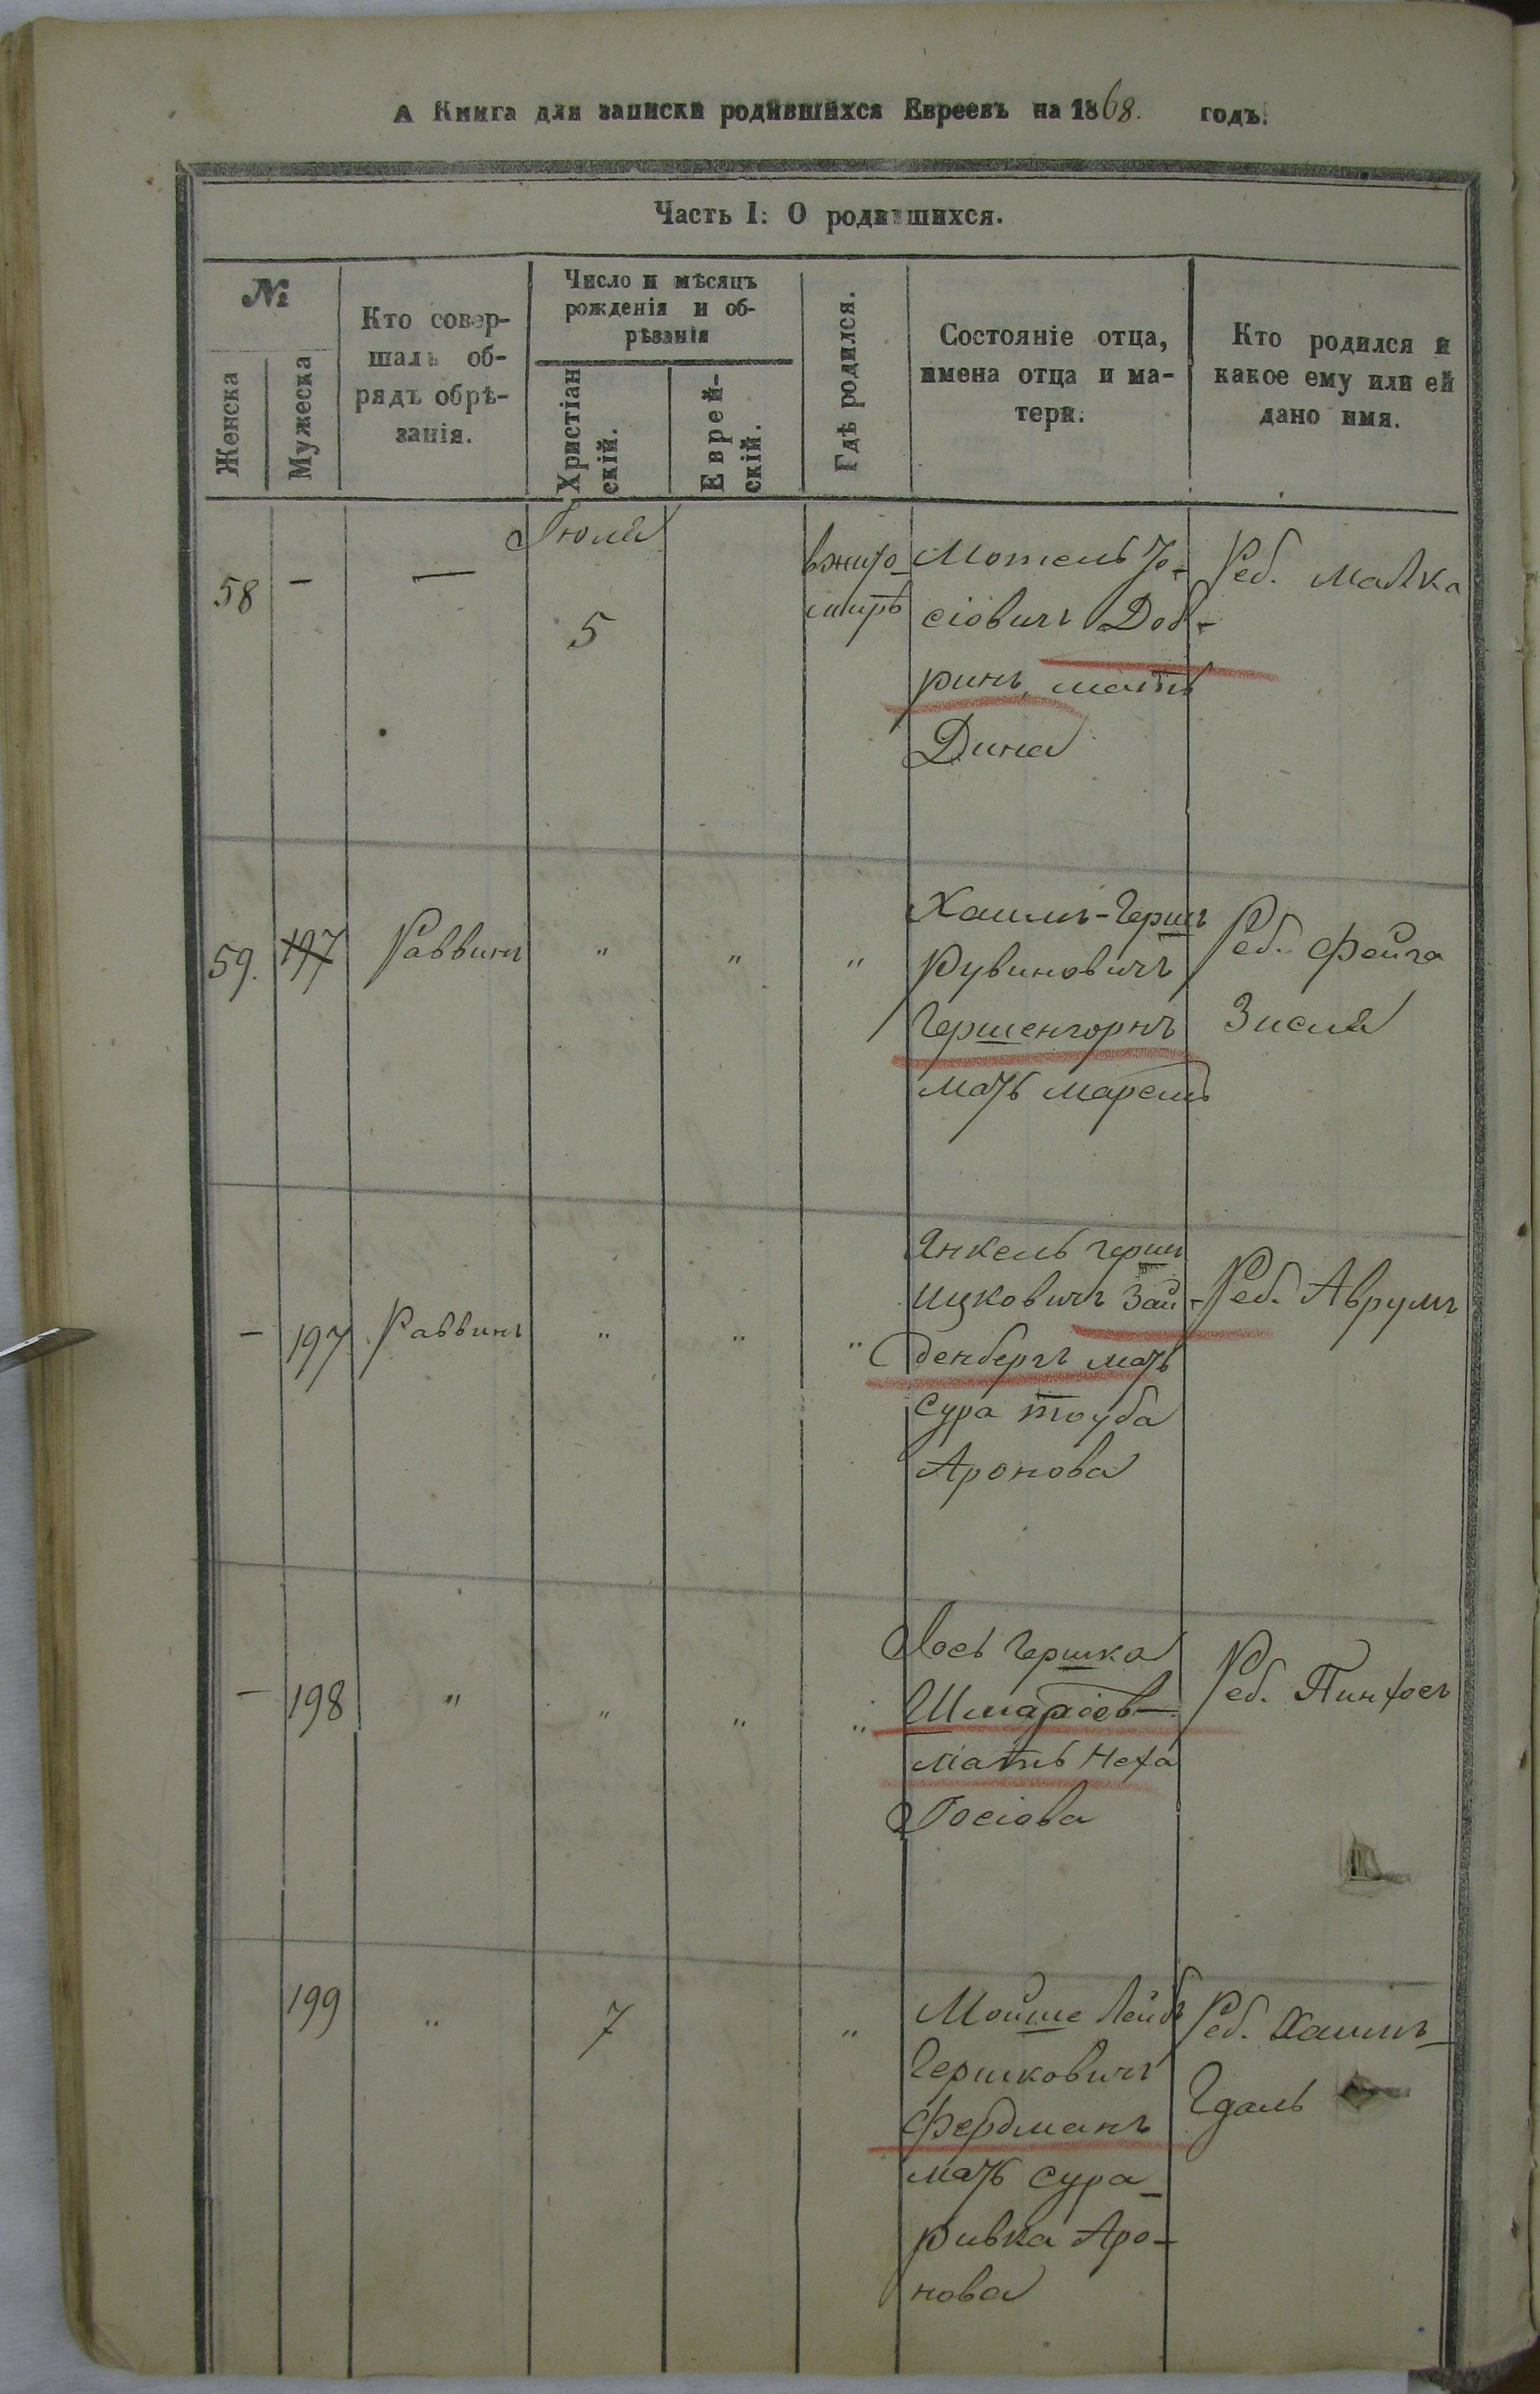 А Книга для записки родившихся Евреевъ на 1868. годъ.
Часть I: О родившихся.
№
Женска
Мужеска
Кто совер-
шалъ об-
рядъ обрѣ-
занія.
Число и мѣсяцъ
рожденія и об-
рѣзанія
Христіан
скій.
Еврей-
скій.
Гдѣ родился.
Состояніе отца,
имена отца и ма-
тери.
Кто родился и
какое ему или ей
дано имя.
Іюля
58 – — 5
вжито-
мирѣ
Мотель Іо-
сіовичъ Доб-
ринъ, мать
Дина
Реб. Малка
59. 197 Раввинъ " " "
Хаимъ-Гершъ
Рувиновичъ
Гершенгорнъ
мать
Реб. Фейга
Зисля
– 197 Раввинъ " " "
Янкель Герш
Ицковичъ Зай-
денбергъ мать
Сура тоуба
Аронова
Реб. Аврумъ
– 198 " " " "
Іось Гершко
Шмаріев
мать Неха
Іосіова
Реб. Пинхосъ
199 " 7 "
Мойше Лейбъ
Гершковичъ
Фердманъ
мать Сура-
Ривка Аро-
нова
Реб. Хаимъ-
Гдаль